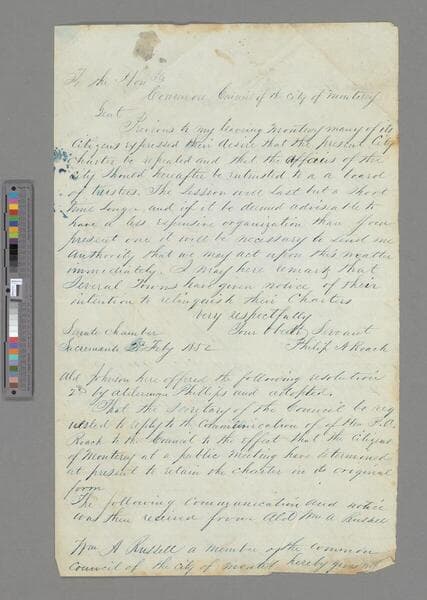 To the Honble
Common Council of the City of Monterey
Gent
Previous to my leaving Monterey many of its
Citizens expressed their desire that the present City
Charter be repealed and that the affairs of the
City should hereafter be intrusted to a a board
of trustees. The Session will last but a short
time longer and if it be deemed advisable to
have a less expensive organization than your
present one it will be necessary to send me
authority that we may act upon this matter
immediately. I may here remark that
Several Towns have given notice of their
intention to relinquish their Charters
Very respectfully
Senate Chamber Your Obedt Servant
Sacramento Feby 1852 Philip A Roach
Ald Johnson here offered the following resolution
2d by alderman Phillips and adopted.
That the Secretary of the Council be req
uested to reply to the Communication of of Hon P. A.
Roach to the Council to the effect that the Citizens
of Monterey at a public meeting have determined
at present to retain the Charter in its original
form
The following Communication and notice
was then received from Ald Wm A Russell
Wm A Russell a member of the Common
Council of the city of Monterey hereby gives